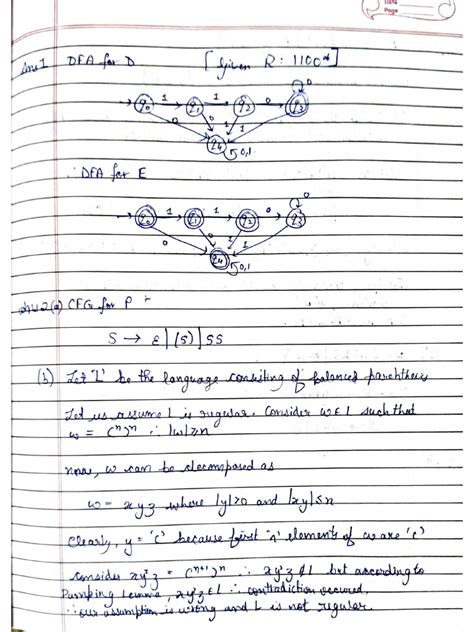 Date
Page
Ans 1 DFA for D [Given R: 1100*]
q0 1 q1 1 q2 0 q3 0
0 0 1 1
q4 0,1
∴ DFA for E
q0 1 q1 1 q2 0 q3 0
0 0 1 1
q4 0,1
Ans 2 (a) CFG for P :-
S → ε | (S) | SS
(b) Let 'L' be the language consisting of balanced parenthesis
Let us assume L is regular. Consider w∈L such that
w = (ⁿ)ⁿ ∴ |w|≥n
now, w can be decomposed as
w = xyz where |y|>0 and |xy|≤n
Clearly, y = '(' because first 'n' elements of w are '('
consider xy²z = (ⁿ⁺¹)ⁿ ∴ xy²z ∉ L but according to
Pumping Lemma, xy²z ∈ L ∴ contradiction occured.
∴ our assumption is wrong and L is not regular.